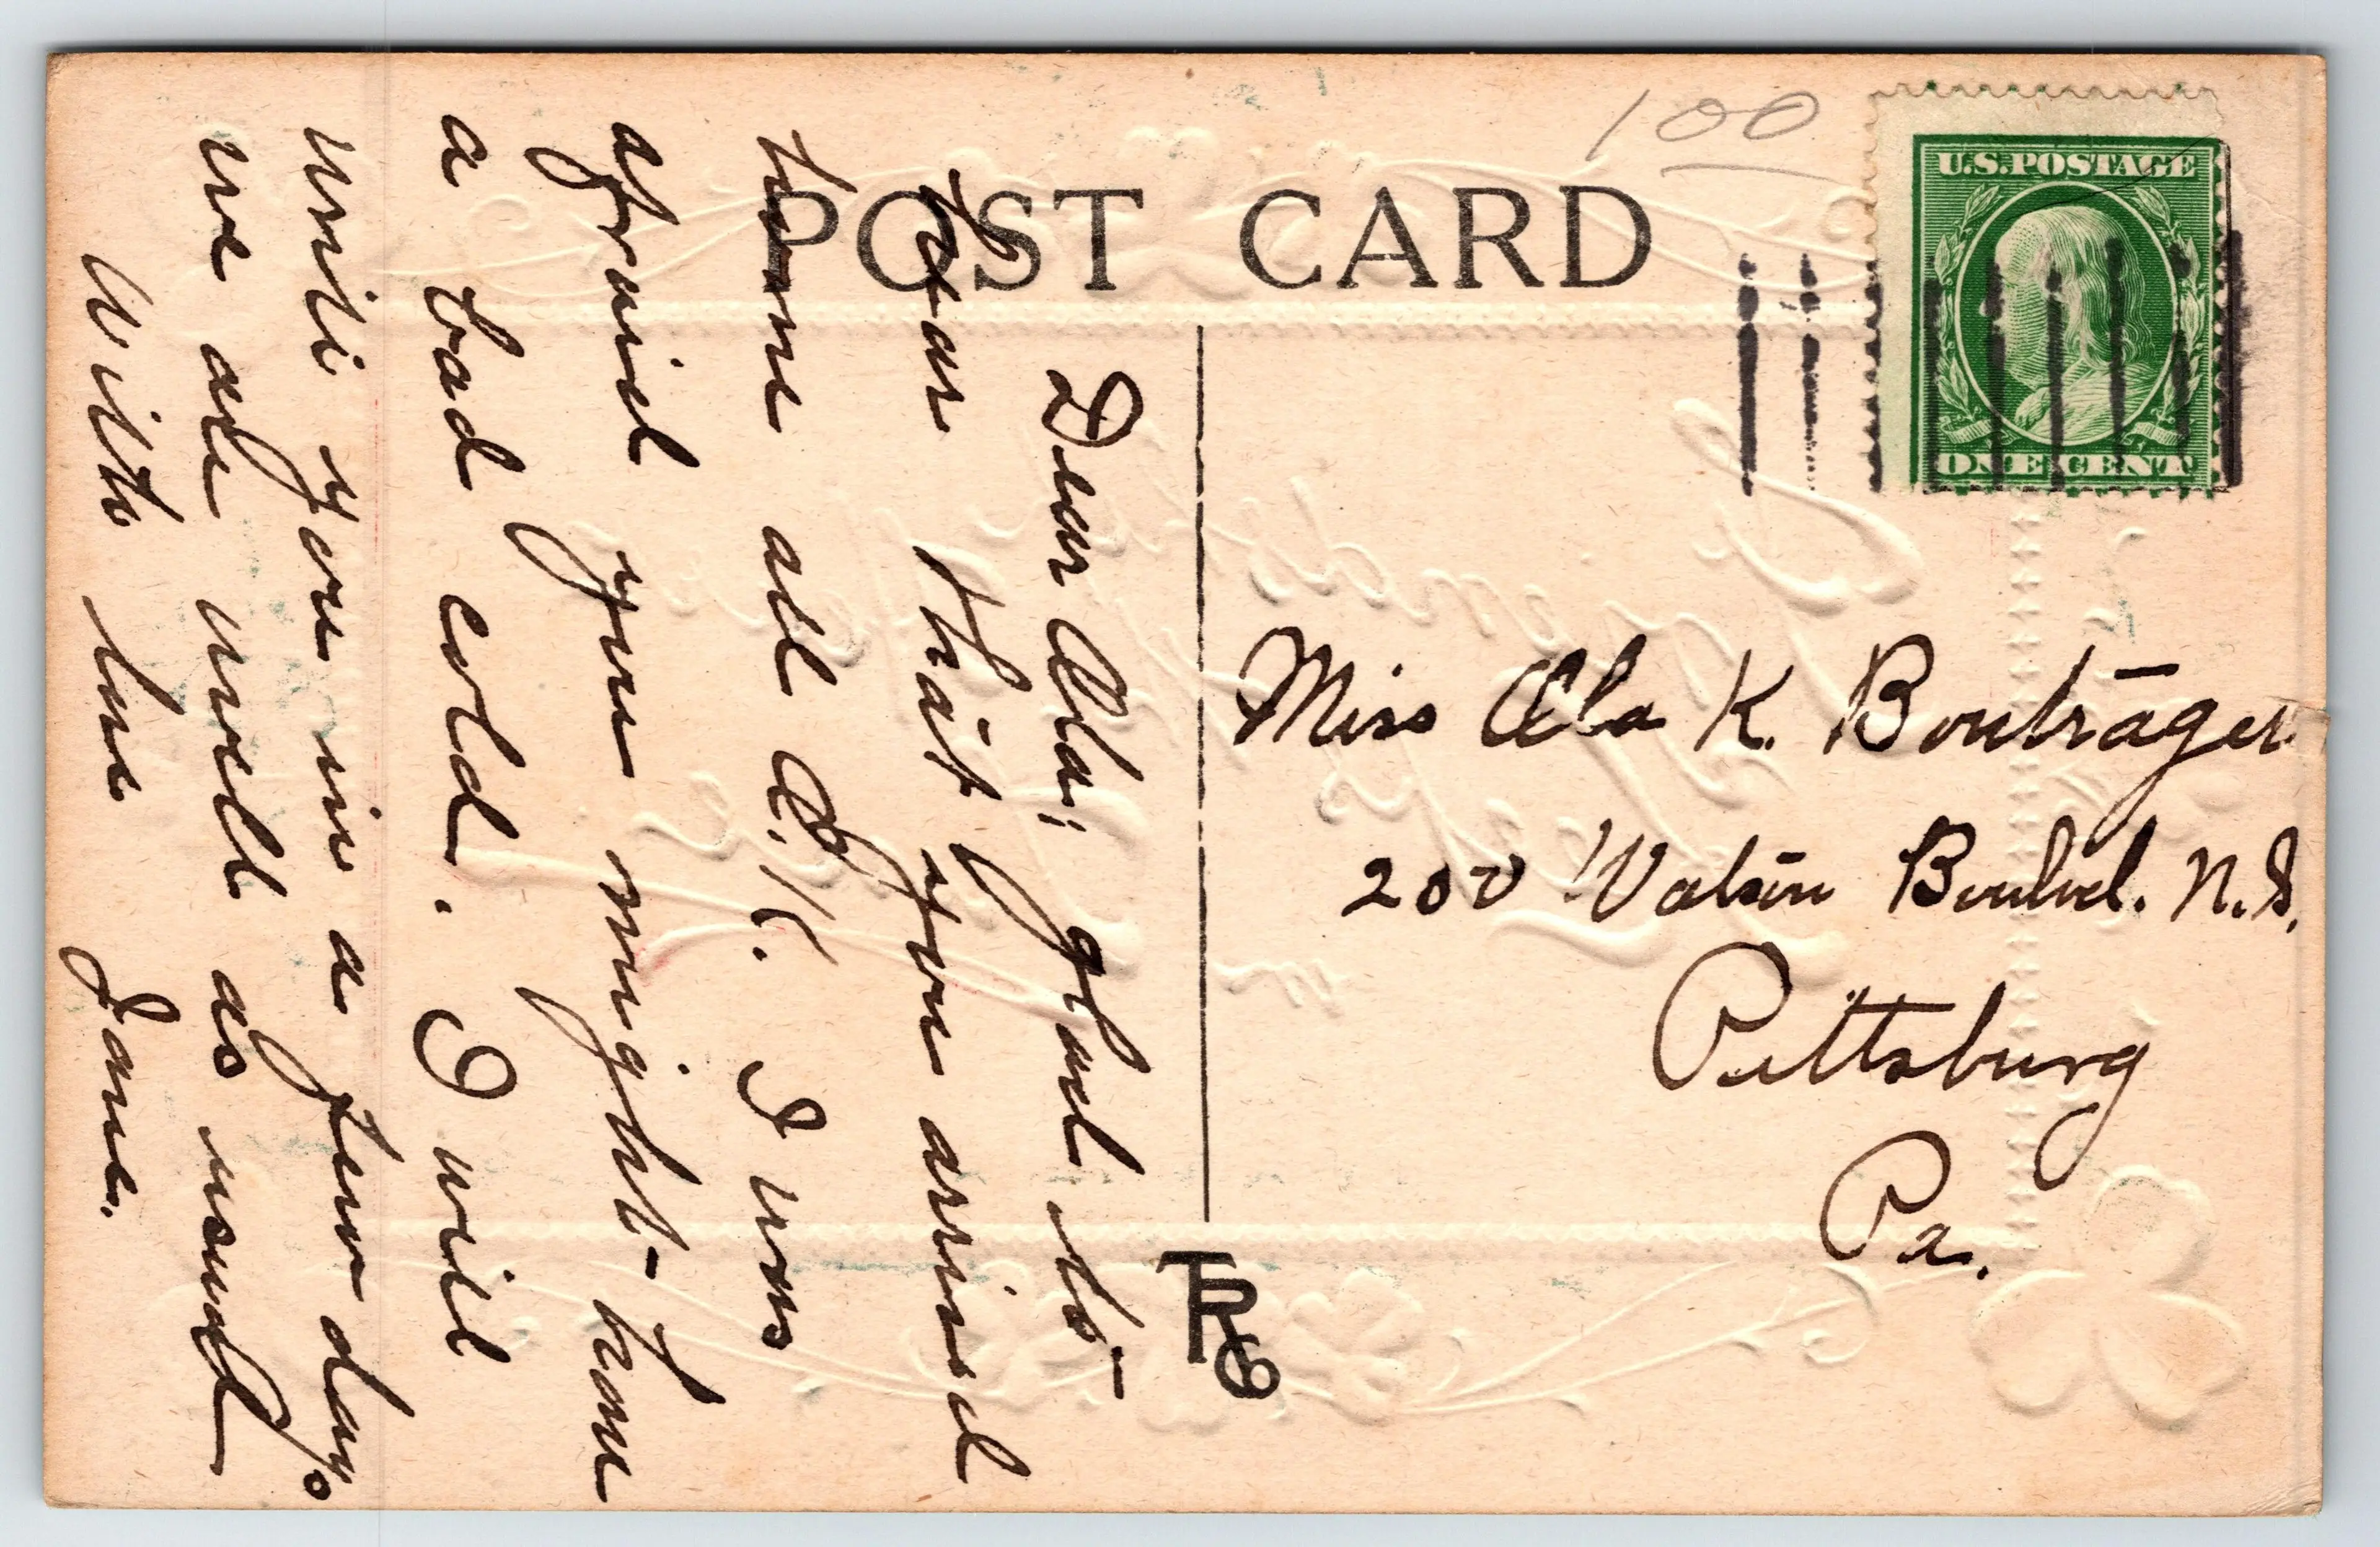 POST CARD
100
U.S. POSTAGE
ONE CENT
Dear Ada; glad to
hear that you arrived
home all O.K. I was
afraid you might have
a bad cold. I will
write you in a few days
we are well as usual
With love Jane.
Miss Ada K. Bouträger
200 Watson Boulvd. N.S.
Pittsburg
Pa.